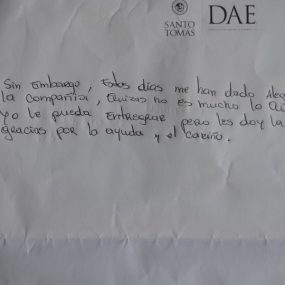 SANTO
TOMAS
DAE
Sin Embargo, Estos dias me han dado Aleg
la compañia, Quizas no es mucho lo
yo le pueda Entregar pero les doy la
gracias por la ayuda y el cariño.